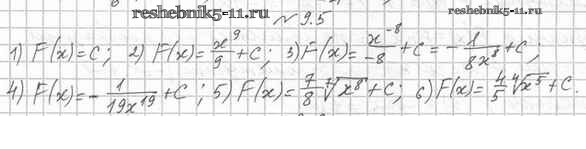 reshebnik5-11.ru
reshebnik5-11.ru
№ 9.5
1) F(x)=C; 2) F(x)=x⁹/9+C; 3) F(x)=x⁻⁸/-8+C=-1/8x⁸+C;
4) F(x)=-1/19x¹⁹+C; 5) F(x)=7/8 ⁷√x⁸+C; 6) F(x)=4/5 ⁴√x⁵+C.